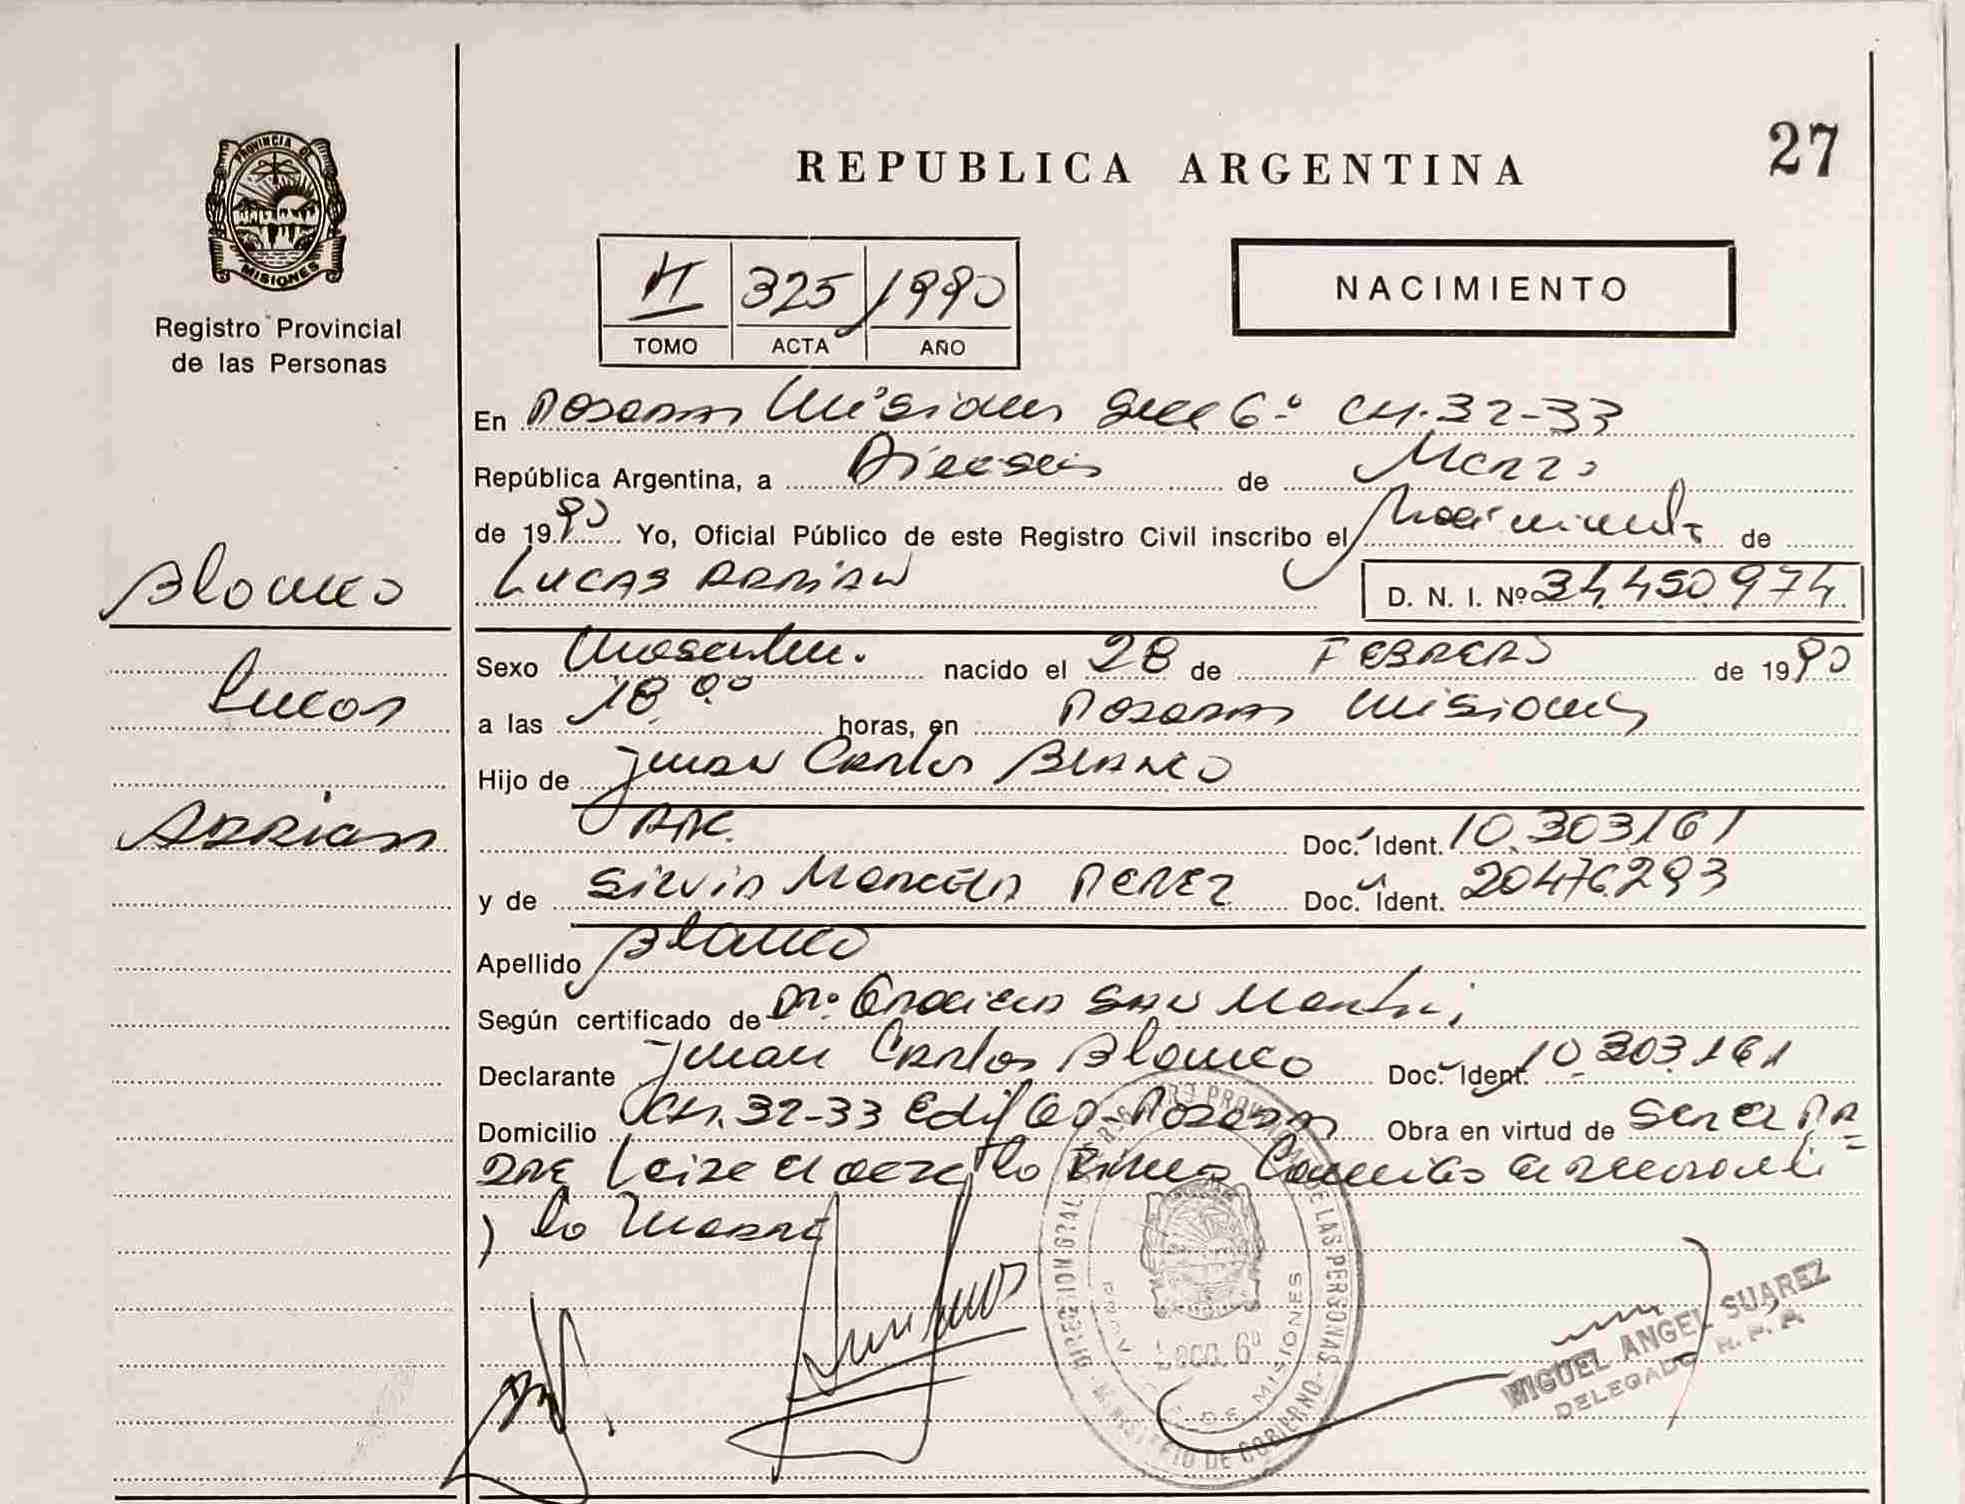 PROVINCIA DE
MISIONES
Registro Provincial
de las Personas
27
REPUBLICA ARGENTINA
II 325 1990
TOMO ACTA AÑO
NACIMIENTO
En Posadas Misiones Secc 6º CH. 32-33
República Argentina, a Dieciseis de Marzo
de 1990 Yo, Oficial Público de este Registro Civil inscribo el Nacimiento de
LUCAS ADRIAN D. N. I. Nº 34,450.974
Blanco
Lucas
Adrian
Sexo Masculino. nacido el 28 de FEBRERO de 1990
a las 18.00 horas, en Posadas Misiones
Hijo de Juan Carlos BLANCO
Doc. Ident. 10.303.161
y de Silvia Marcela PEREZ Doc. Ident. 20476293
Apellido Blanco
Según certificado de Dr. Graciela San Martin
Declarante Juan Carlos Blanco Doc. Ident. 10.303.161
Domicilio CH. 32-33 Edif Posadas Obra en virtud de Ser el Pa=
dre
la Madre
DIRECCION GRAL REGISTRO PROVINCIAL DE LAS PERSONAS
MINISTERIO DE GOBIERNO
PROV. DE MISIONES
Secc. 6º
MIGUEL ANGEL SUAREZ
DELEGADO R. P. P.